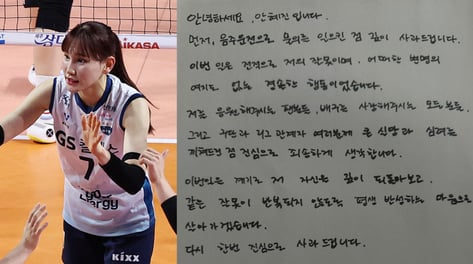 MIKASA
GS
7
KIXX
안녕하세요, 안혜진입니다.
먼저, 음주운전으로 물의를 일으킨 점 깊이 사과드립니다.
이번 일은 전적으로 저의 잘못이며, 어떠한 변명의
여지도 없는 경솔한 행동이었습니다.
저를 응원해주시는 팬분들, 배구를 사랑해주시는 모든 분들,
그리고 구단과 리그 관계자 여러분께 큰 실망과 심려를
끼쳐드린 점 진심으로 죄송하게 생각합니다.
이번일을 계기로 저 자신을 깊이 되돌아보고
같은 잘못이 반복되지 않도록 평생 반성하는 마음으로
살아가겠습니다.
다시 한번 진심으로 사과드립니다.